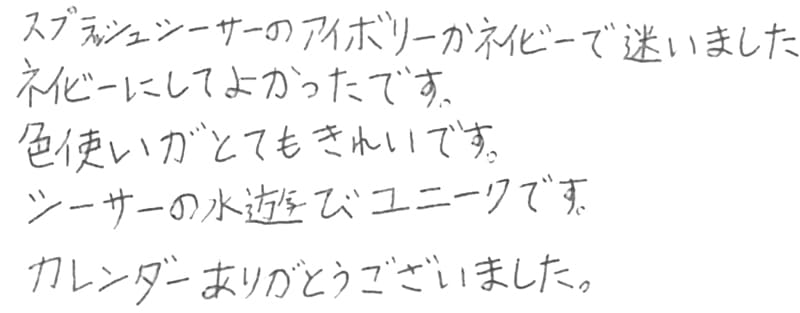 スプラッシュシーサーのアイボリーかネイビーで迷いました
ネイビーにしてよかったです。
色使いがとてもきれいです。
シーサーの水遊びユニークです。
カレンダーありがとうございました。